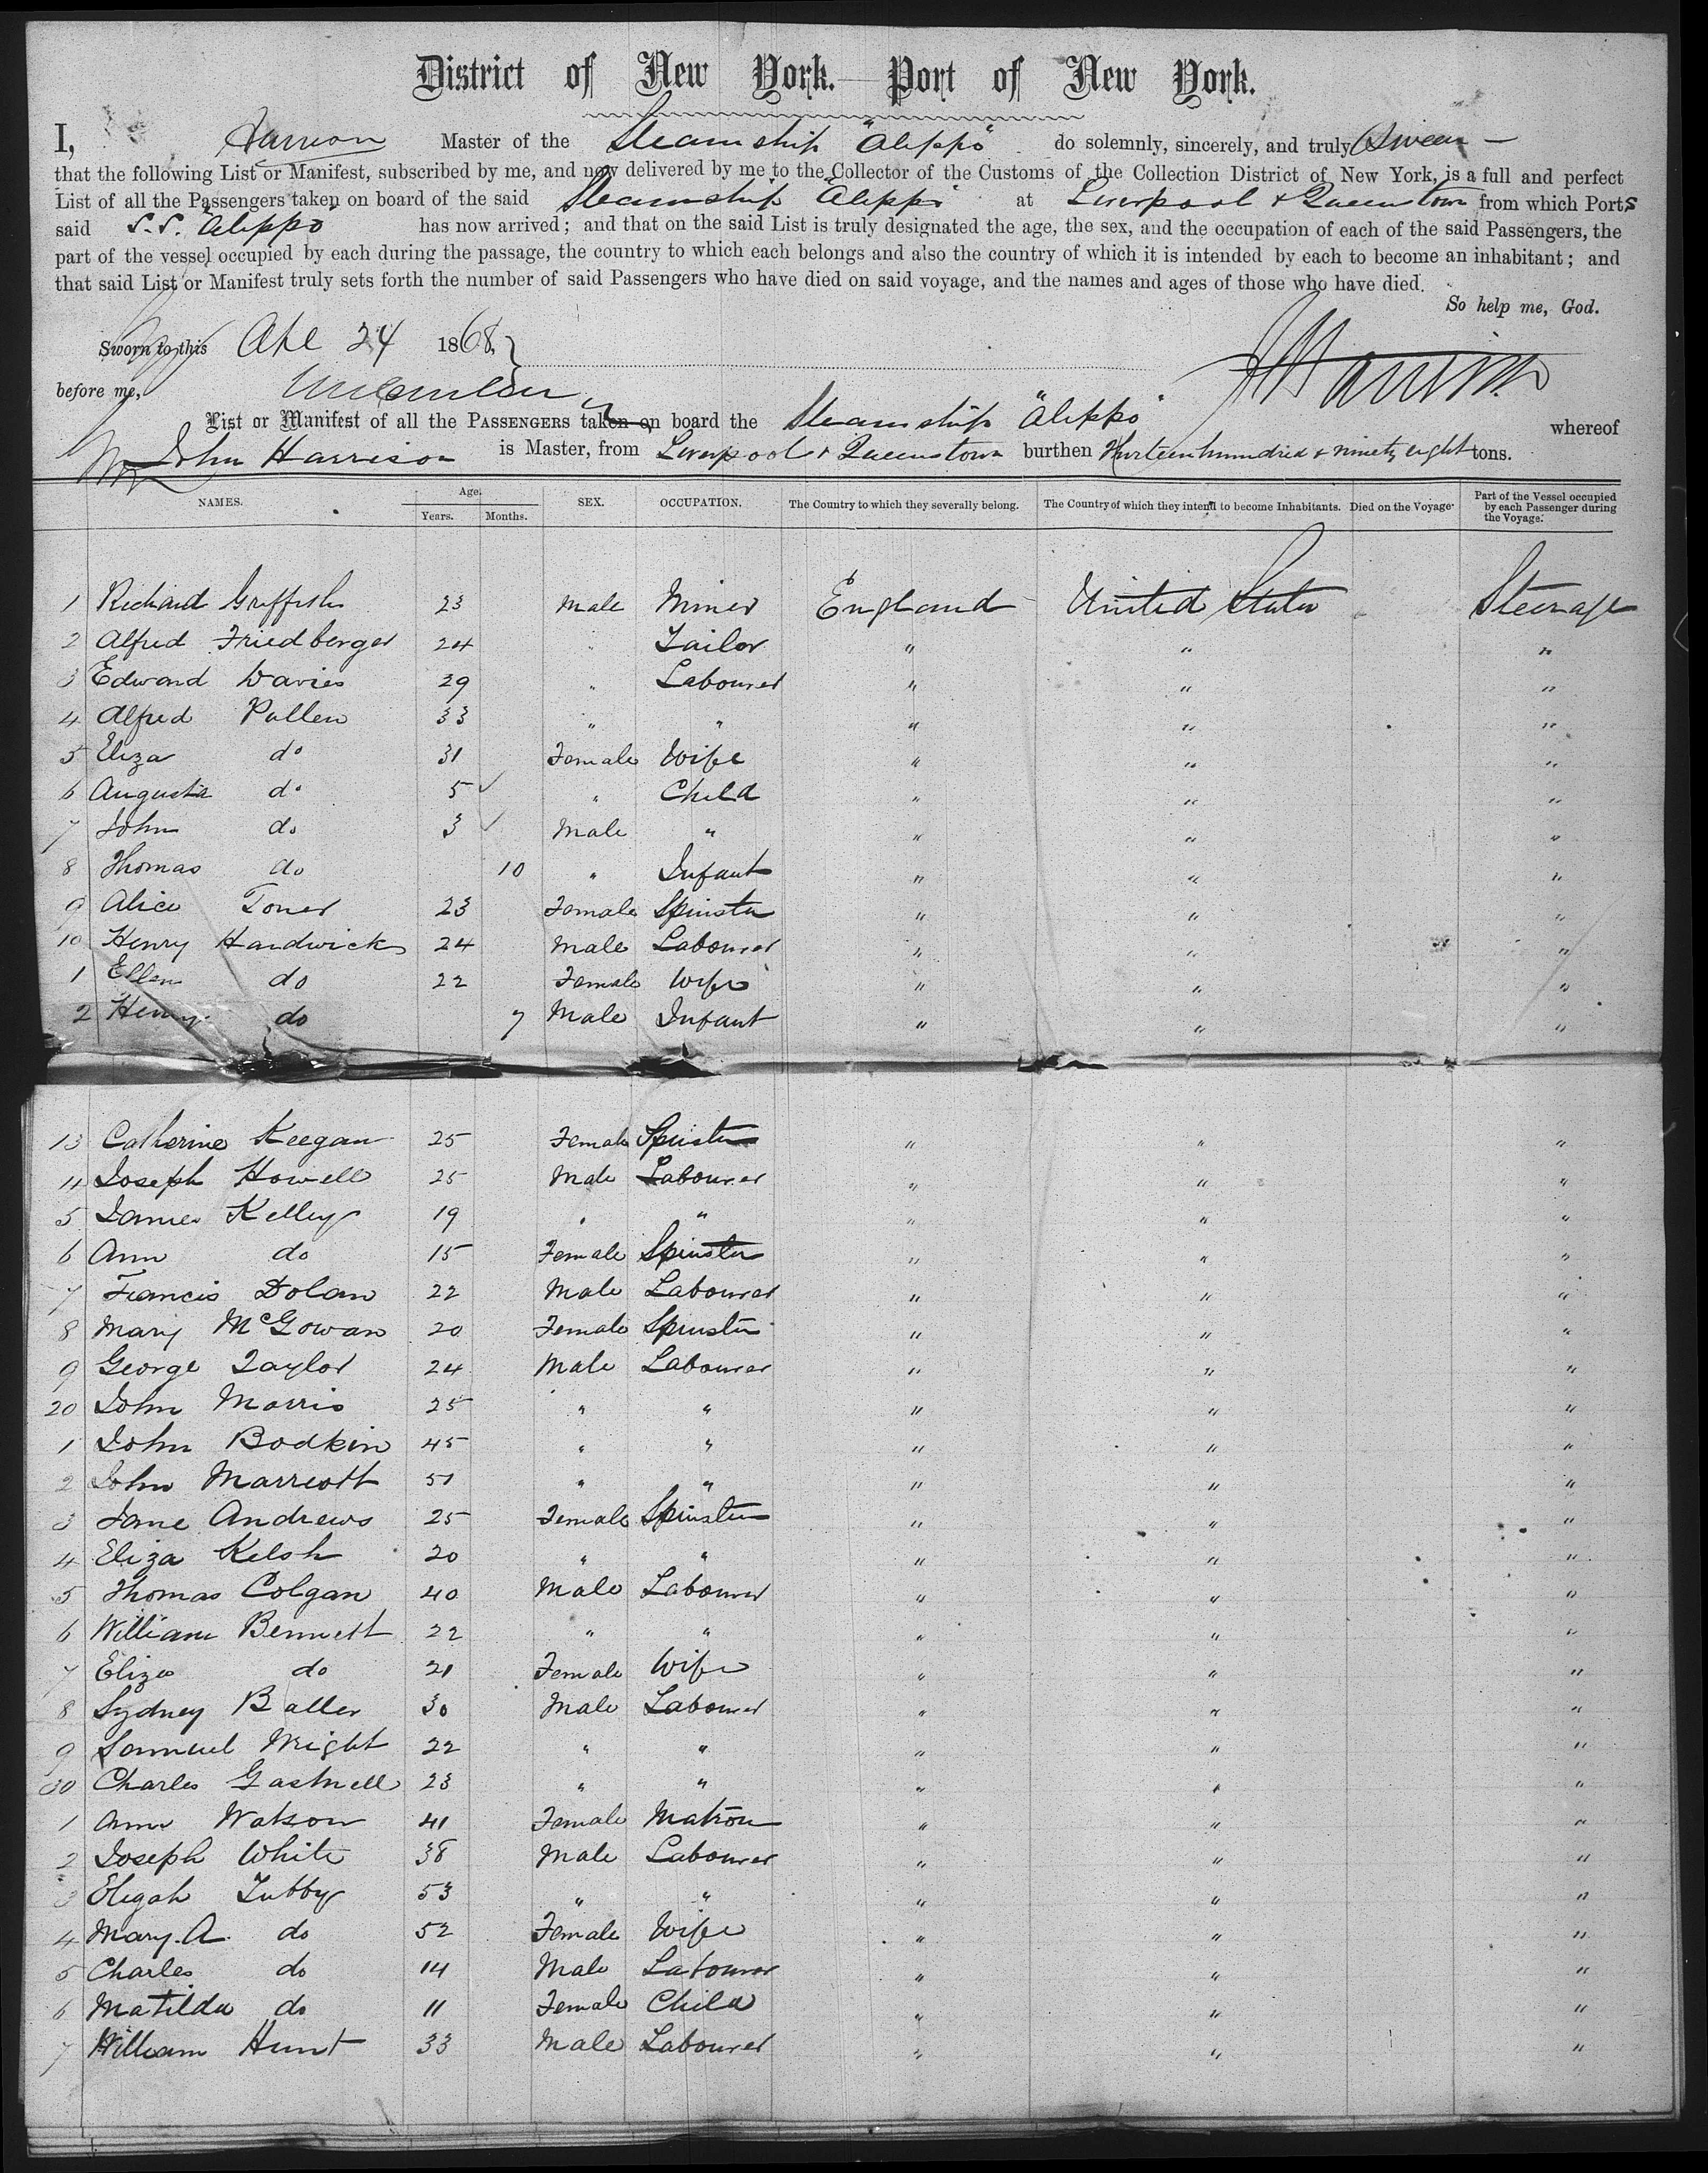 District of New York.—Port of New York.
I, Harrison Master of the Steamship "Aleppo" do solemnly, sincerely, and truly Swear —
that the following List or Manifest, subscribed by me, and now delivered by me to the Collector of the Customs of the Collection District of New York, is a full and perfect
List of all the Passengers taken on board of the said Steamship "Aleppo" at Liverpool & Queenstown from which Ports
said S.S. "Aleppo" has now arrived; and that on the said List is truly designated the age, the sex, and the occupation of each of the said Passengers, the
part of the vessel occupied by each during the passage, the country to which each belongs and also the country of which it is intended by each to become an inhabitant; and
that said List or Manifest truly sets forth the number of said Passengers who have died on said voyage, and the names and ages of those who have died.
So help me, God.
Sworn to this Apl 24 1868,
before me,
List or Manifest of all the PASSENGERS taken on board the Steamship "Aleppo" whereof
John Harrison is Master, from Liverpool & Queenstown burthen thirteen hundred & ninety eight tons.
NAMES. Age. Years. Months. SEX. OCCUPATION. The Country to which they severally belong. The Country of which they intend to become Inhabitants. Died on the Voyage. Part of the Vessel occupied by each Passenger during the Voyage.
1 Richard Griffiths 23 Male Miner England United States Steerage
2 Alfred Friedberger 24 " Tailor " " "
3 Edward Davies 29 " Labourer " " "
4 Alfred Pullen 33 " " " " "
5 Eliza do 31 Female Wife " " "
6 Augusta do 5 ✓ " Child " " "
7 John do 3 ✓ Male " " " "
8 Thomas do 10 " Infant " " "
9 Alice Toner 23 Female Spinster " " "
10 Henry Hardwicks 24 Male Labourer " " "
1 Ellen do 22 Female Wife " " "
2 Henry do 7 Male Infant " " "
13 Catherine Keegan 25 Female Spinster " " "
4 Joseph Howell 25 Male Labourer " " "
5 James Kelley 19 " " " " "
6 Ann do 15 Female Spinster " " "
7 Francis Dolan 22 Male Labourer " " "
8 Mary McGowan 20 Female Spinster " " "
9 George Taylor 24 Male Labourer " " "
20 John Morris 25 " " " " "
1 John Bodkin 45 " " " " "
2 John Marriott 51 " " " " "
3 Jane Andrews 25 Female Spinster " " "
4 Eliza Kelsh 20 " " " " "
5 Thomas Colgan 40 Male Labourer " " "
6 William Bennett 22 " " " " "
7 Eliza do 21 Female Wife " " "
8 Sydney Baller 30 Male Labourer " " "
9 Samuel Wright 22 " " " " "
30 Charles Gastnell 23 " " " " "
1 Ann Watson 41 Female Matron " " "
2 Joseph White 38 Male Labourer " " "
3 Elijah Tubby 53 " " " " "
4 Mary. A. do 52 Female Wife " " "
5 Charles do 14 Male Labourer " " "
6 Matilda do 11 Female Child " " "
7 William Hunt 33 Male Labourer " " "